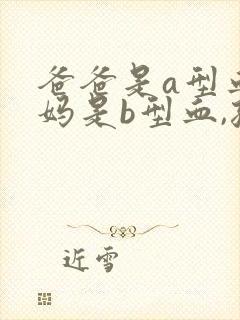 爸爸是a型
妈是b型血,
近雪